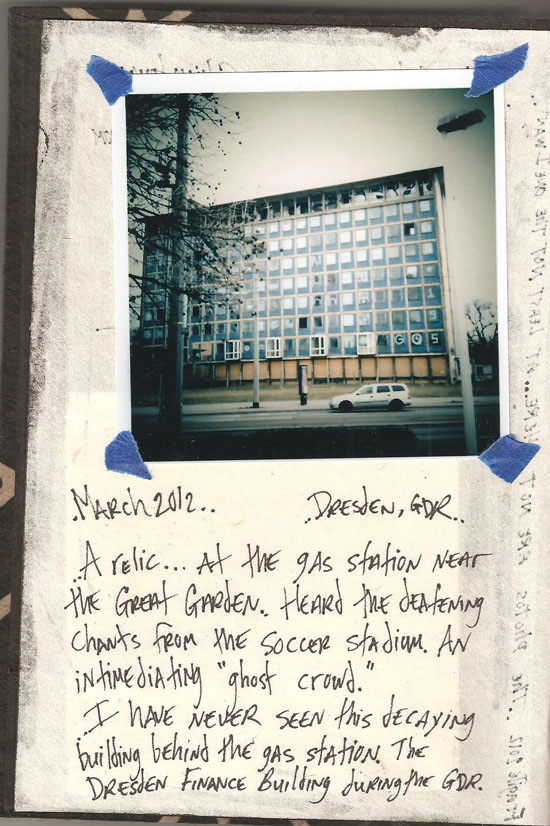 .March 2012..
..Dresden, GDR..
..A relic... At the gas station near
the Great Garden. Heard the deafening
chants from the soccer stadium. An
intimediating "ghost crowd."
..I have never seen this decaying
building behind the gas station. The
Dresden Finance Building during the GDR.
Fragile 2012 ...The photos are not here... At least not the one I want...